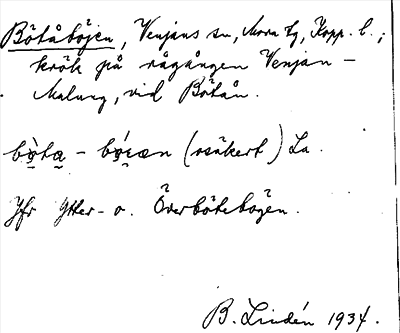 Bötåböjen, Venjans sn, Mora tg, Kopp. l.;
krök på rågången Venjan –
Malung, vid Bötån.
(osäkert) La.
Jfr Ytter- o. Överbötebogen.
B. Lindén 1934.